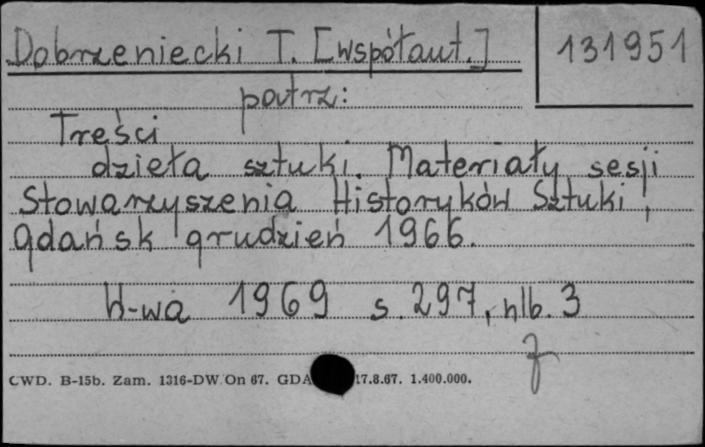 Dobrzeniecki T. [współaut.]
131951
patrz:
Treści
dzieła sztuki. Materiały sesji
Stowarzyszenia Historyków Sztuki,
Gdańsk grudzień 1966.
W-wa 1969 s. 297, nlb. 3
CWD. B-15b. Zam. 1316-DW. On 67. GDA 17.8.67. 1.400.000.